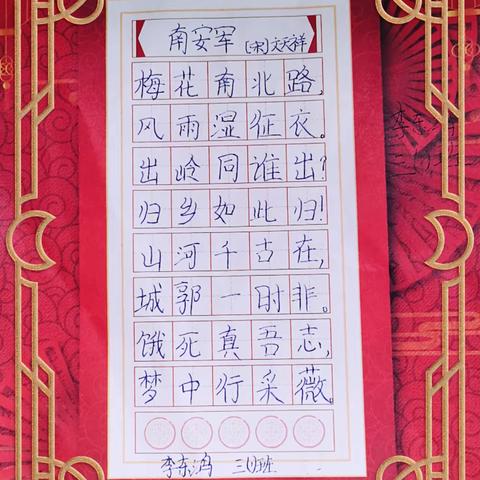 南安军 [宋]文天祥
梅花南北路,
风雨湿征衣。
出岭同谁出?
归乡如此归!
山河千古在,
城郭一时非。
饿死真吾志,
梦中行采薇。
李东鸿 三(1)班